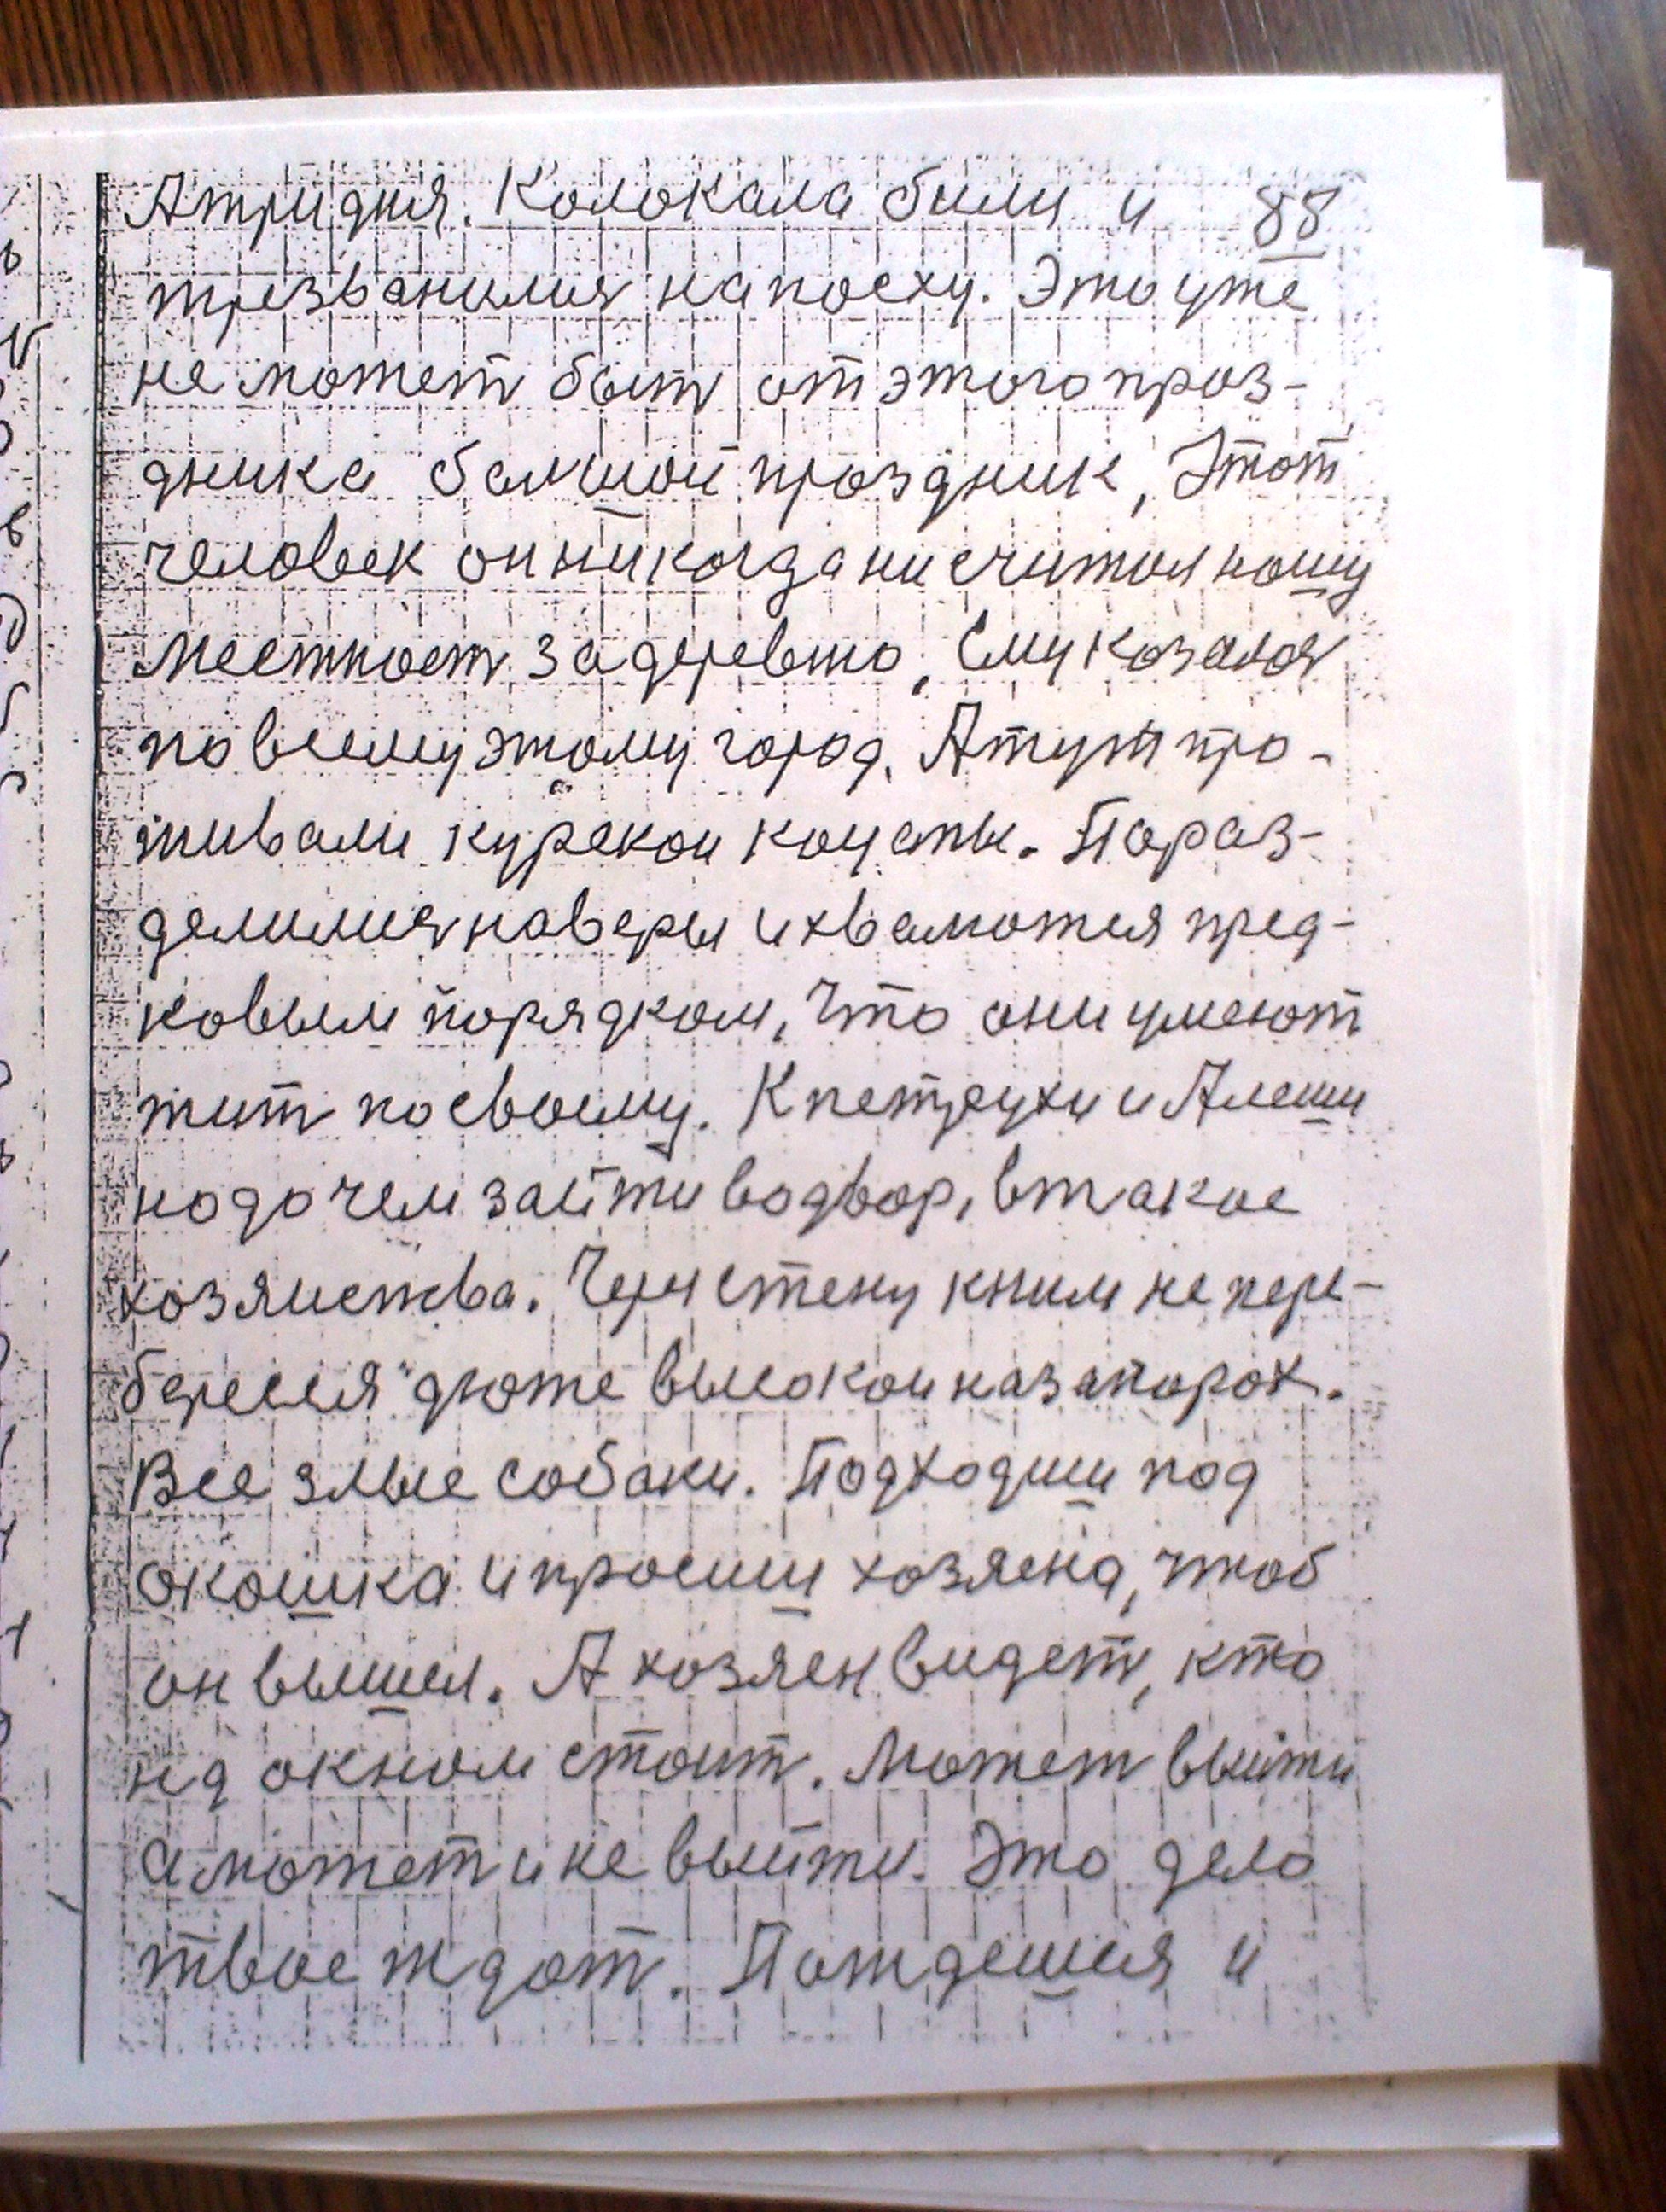 А три дня. Колокала были и 88
трезванилися на посху. Это уже
не может быт от этого праз-
дника балшой праздник, Этот
человек он никогда ни считал ношу
местност за деревню, Ему козалоя
по всему этому город. А тут про-
живали курскои коцапы. Пораз-
делилися на веры и хвамотся пред-
ковым порядком, Что они умеют
жит по своему. К петрухи и Алеши
надо чем зайти во двор, в такое
хозяиства. Чери стену к ним не пере-
береися дюже высокои на запорах.
Все злые собаки. Подходиш под
окошка и просиш хозяена, чтоб
он вышел. А хозяен видет, кто
под окном стоит. Может выйти
а может и не выйти. Это дело
твое ждат. Пождешся и